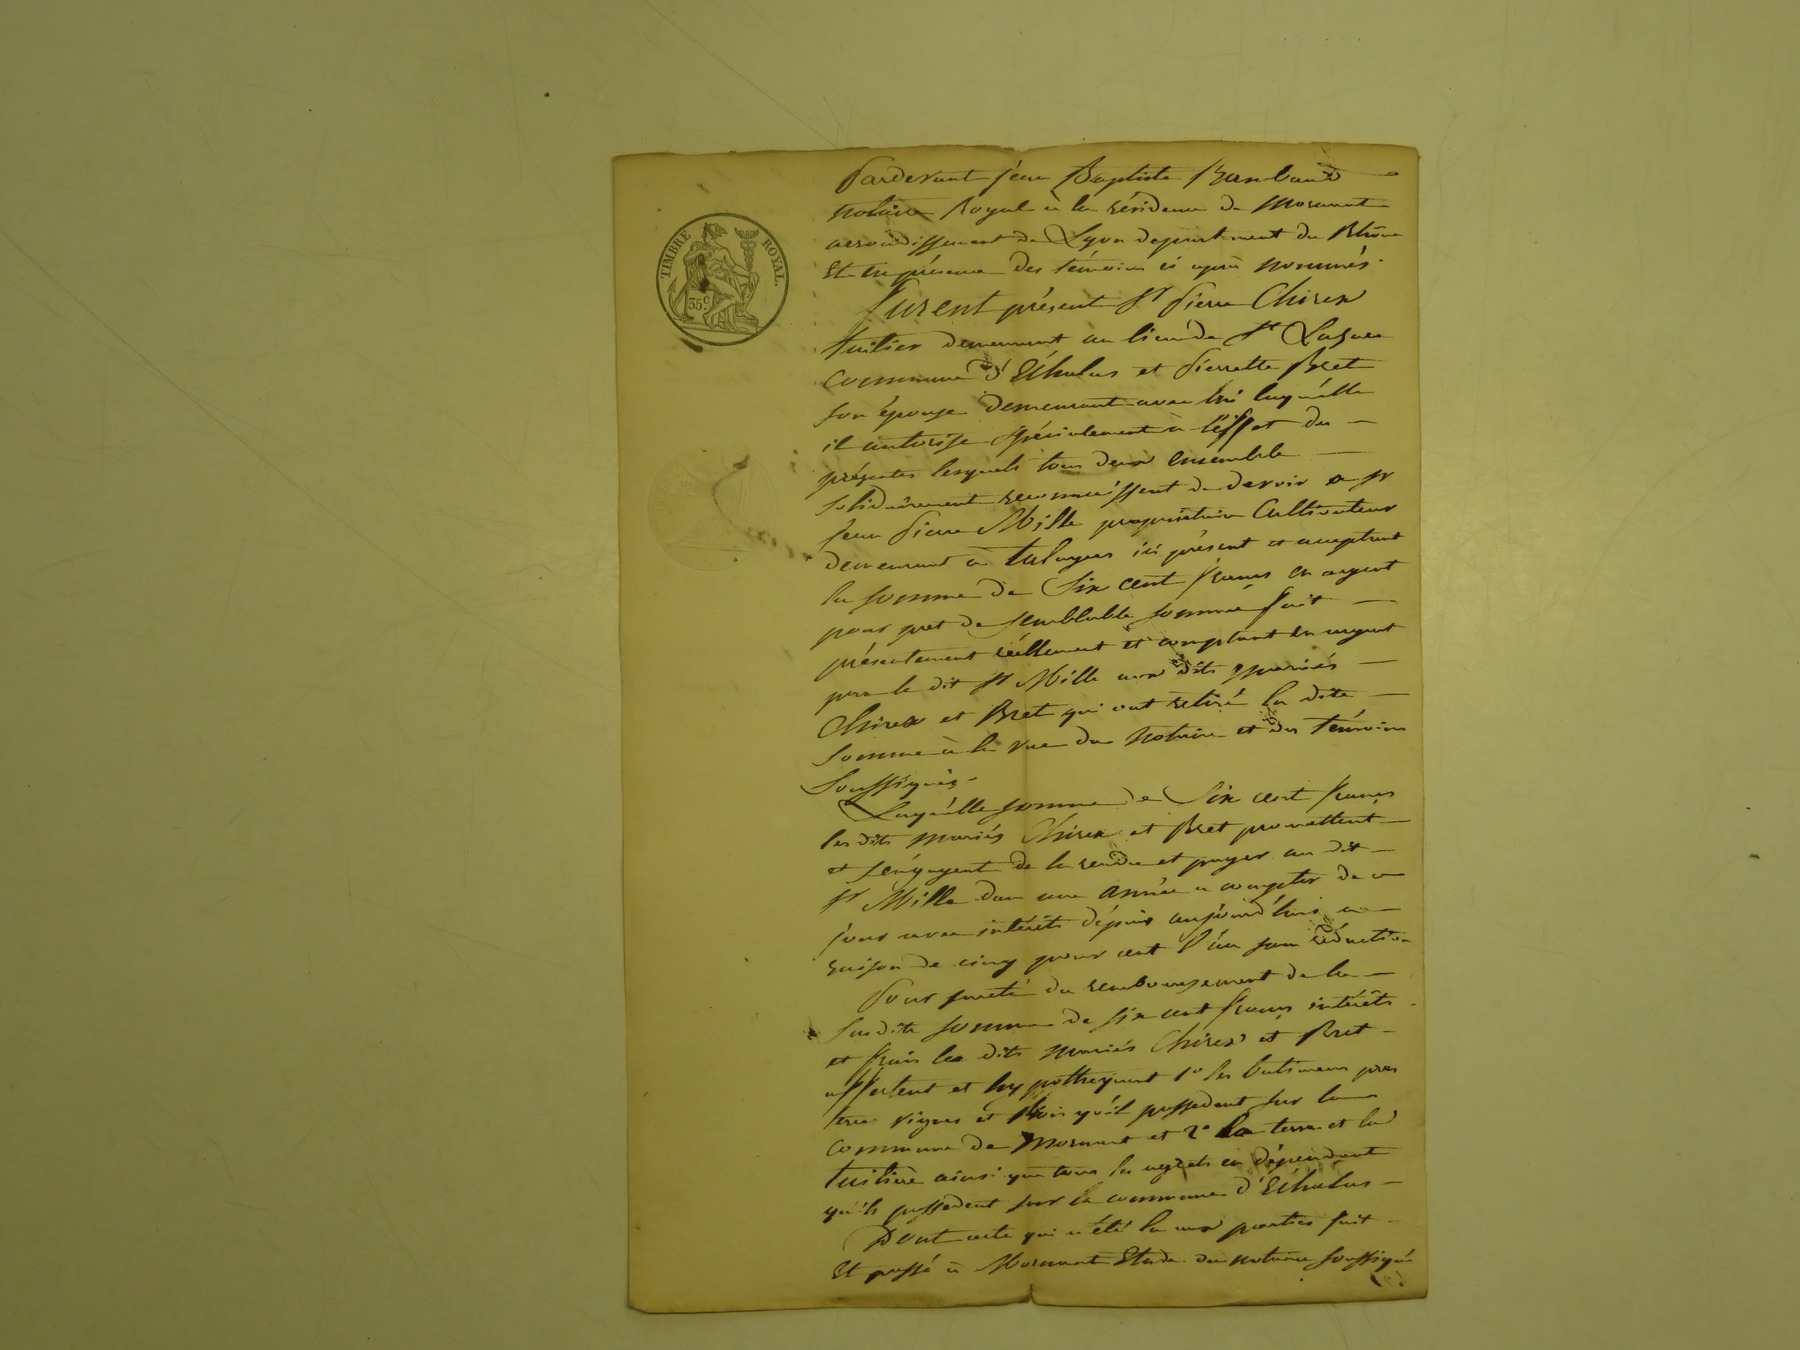 TIMBRE ROYAL.
35c
Pardevant jean Baptiste
notaire Royal à la résidence de Mornant
arrondissement de Lyon departement du Rhône
Et en présence des témoins ci après nommés.
Furent présent Sr Pierre Chirex
tuilier demeurant au lieu de St Lazare
commune d'Échalas et Pierrette Bret
son épouse demeurant avec lui laquélle
il autorise spécialement à l'éffet des
présentes lesquels tous deux ensemble
solidairement reconnaissent de devoir a sr
jean Pierre Mille propriétaire Cultivateur
demeurant à taluyers ici présent et acceptant
la somme de Six cent francs en argent
pour pret de semblable somme fait
présentement réellement et comptant en argent
par le dit Sr Mille aux dits mariés
Chirex et Bret qui ont retiré la dite
Somme à la vue du Notaire et des témoins
Soussignés.
Laquélle somme de Six cent francs
les dits mariés Chirex et Bret promettent
et s'engagent de la rendre et payer au dit
Sr Mille dans une année a compter de ce
jour avec intérêts dépuis aujourd'hui a
raison de cinq pour cent l'an sans réduction
Pour sureté du remboursement de la
susdite somme de six cent francs intérêts
et frais les dits mariés Chirex et Bret
affectent et hypothequent 1o les batimens prés
terres vignes et Bois qu'il possedent sur la
commune de Mornant et 2o La terre et la
tuiliere ainsi que tous les agrets en dépendant
qu'ils possedent sur la commune d'Échalas
Dont acte qui a été lu aux parties fait
Et passé à Mornant Etude du notaire soussigné